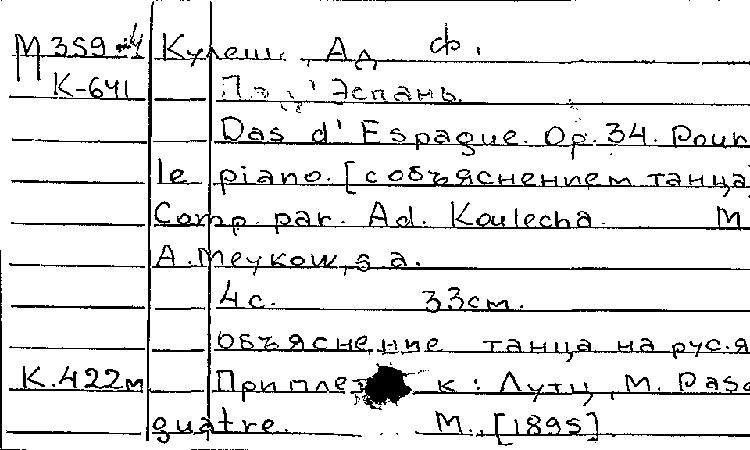 М 359 Кулеш, Ад. Ф.
К-641 Па д'Эспань.
Das d' Espague. Op. 34. Pour
le piano. [с объяснением танца]
Comp. par. Ad. Koulecha. М
А. Мейков, s. a.
4 с. 33 см.
Объяснение танца на рус. я
К. 422м Приплет к: Лутц, М. Pas d
quatre. М., [1895]